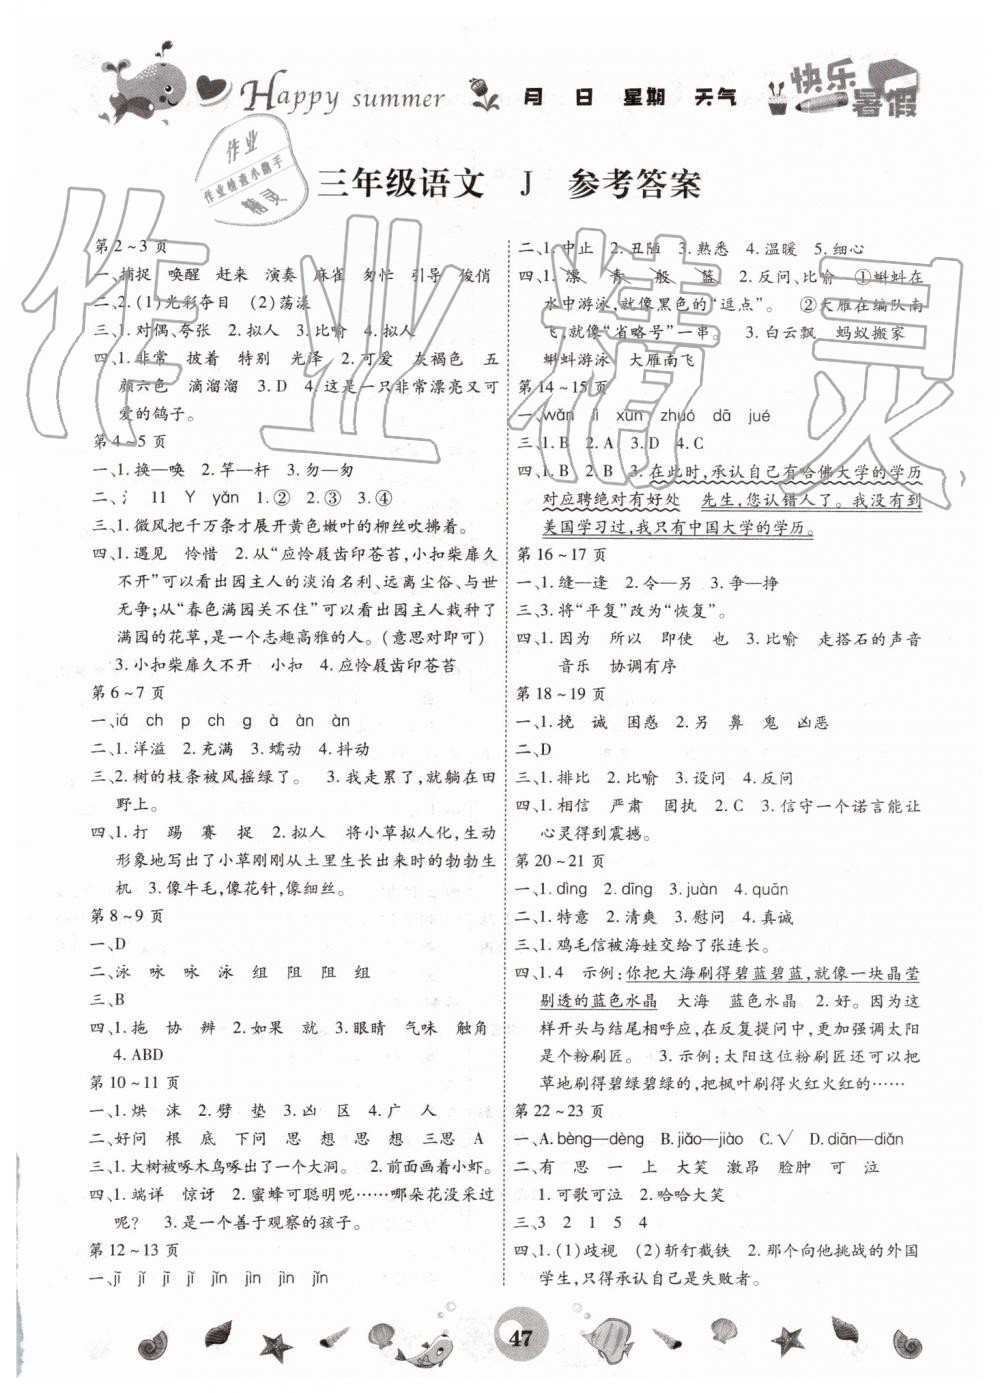 Happy summer
月 日 星期 天气
快乐暑假
作业
作业检查小助手
精灵
三年级语文 J 参考答案
第2~3页
一、捕捉 唤醒 赶来 演奏 麻雀 匆忙 引导 俊俏
二、2.(1)光彩夺目 (2)荡漾
三、1.对偶、夸张 2.拟人 3.比喻 4.拟人
四、1.非常 披着 特别 光泽 2.可爱 灰褐色 五
颜六色 滴溜溜 3.D 4.这是一只非常漂亮又可
爱的鸽子。
第4~5页
一、1.换—唤 2.竿—杆 3.勿—匆
二、氵 11 Y yǎn 1.② 2.③ 3.④
三、1.微风把千万条才展开黄色嫩叶的柳丝吹拂着。
四、1.遇见 怜惜 2.从“应怜屐齿印苍苔,小扣柴扉久
不开”可以看出园主人的淡泊名利、远离尘俗、与世
无争;从“春色满园关不住”可以看出园主人栽种了
满园的花草,是一个志趣高雅的人。(意思对即可)
3.小扣柴扉久不开 小扣 4.应怜屐齿印苍苔
第6~7页
一、iá ch p ch g à àn àn
二、1.洋溢 2.充满 3.蠕动 4.抖动
三、2.树的枝条被风摇绿了。 3.我走累了,就躺在田
野上。
四、1.打 踢 赛 捉 2.拟人 将小草拟人化,生动
形象地写出了小草刚刚从土里生长出来时的勃勃生
机 3.像牛毛,像花针,像细丝。
第8~9页
一、D
二、泳 咏 咏 泳 组 阻 阻 组
三、B
四、1.拖 协 辨 2.如果 就 3.眼睛 气味 触角
4.ABD
第10~11页
一、1.烘 沫 2.劈 垫 3.凶 区 4.广 人
二、好问 根 底 下问 思 想 思 想 三思 A
三、1.大树被啄木鸟啄出了一个大洞。 2.前面画着小虾。
四、1.端详 惊讶 2.蜜蜂可聪明呢……哪朵花没采过
呢? 3.是一个善于观察的孩子。
第12~13页
一、jǐ jǐ jī jī jìn jìn jìn jǐn
二、1.中止 2.丑陋 3.熟悉 4.温暖 5.细心
四、1.漂 青 般 蓝 2.反问、比喻 ①蝌蚪在
水中游泳,就像黑色的“逗点”。 ②大雁在编队南
飞,就像“省略号”一串。 3.白云飘 蚂蚁搬家
蝌蚪游泳 大雁南飞
第14~15页
一、wǎn lì xùn zhuó dā jué
三、1.B 2.A 3.D 4.C
四、1.B 2.B 3.在此时,承认自己有哈佛大学的学历
对应聘绝对有好处 先生,您认错人了。我没有到
美国学习过,我只有中国大学的学历。
第16~17页
一、1.缝—逢 2.令—另 3.争—挣
三、3.将“平复”改为“恢复”。
四、1.因为 所以 即使 也 3.比喻 走搭石的声音
音乐 协调有序
第18~19页
一、1.挽 诚 困惑 2.另 鼻 鬼 凶恶
二、D
三、1.排比 2.比喻 3.设问 4.反问
四、1.相信 严肃 固执 2.C 3.信守一个诺言能让
心灵得到震撼。
第20~21页
一、1.dìng 2.dīng 3.juàn 4.quān
二、1.特意 2.清爽 3.慰问 4.真诚
三、1.鸡毛信被海娃交给了张连长。
四、1.4 示例:你把大海刷得碧蓝碧蓝,就像一块晶莹
剔透的蓝色水晶 大海 蓝色水晶 2.好。因为这
样开头与结尾相呼应,在反复提问中,更加强调太阳
是个粉刷匠。 3.示例:太阳这位粉刷匠还可以把
草地刷得碧绿碧绿的,把枫叶刷得火红火红的……
第22~23页
一、A.bèng—dèng B.jiǎo—jiào C.√ D.diān—diǎn
二、有 思 一 上 大笑 激昂 脸肿 可 泣
1.可歌可泣 2.哈哈大笑
三、3 2 1 5 4
四、1.(1)歧视 (2)斩钉截铁 2.那个向他挑战的外国
学生,只得承认自己是失败者。
47
作业精灵